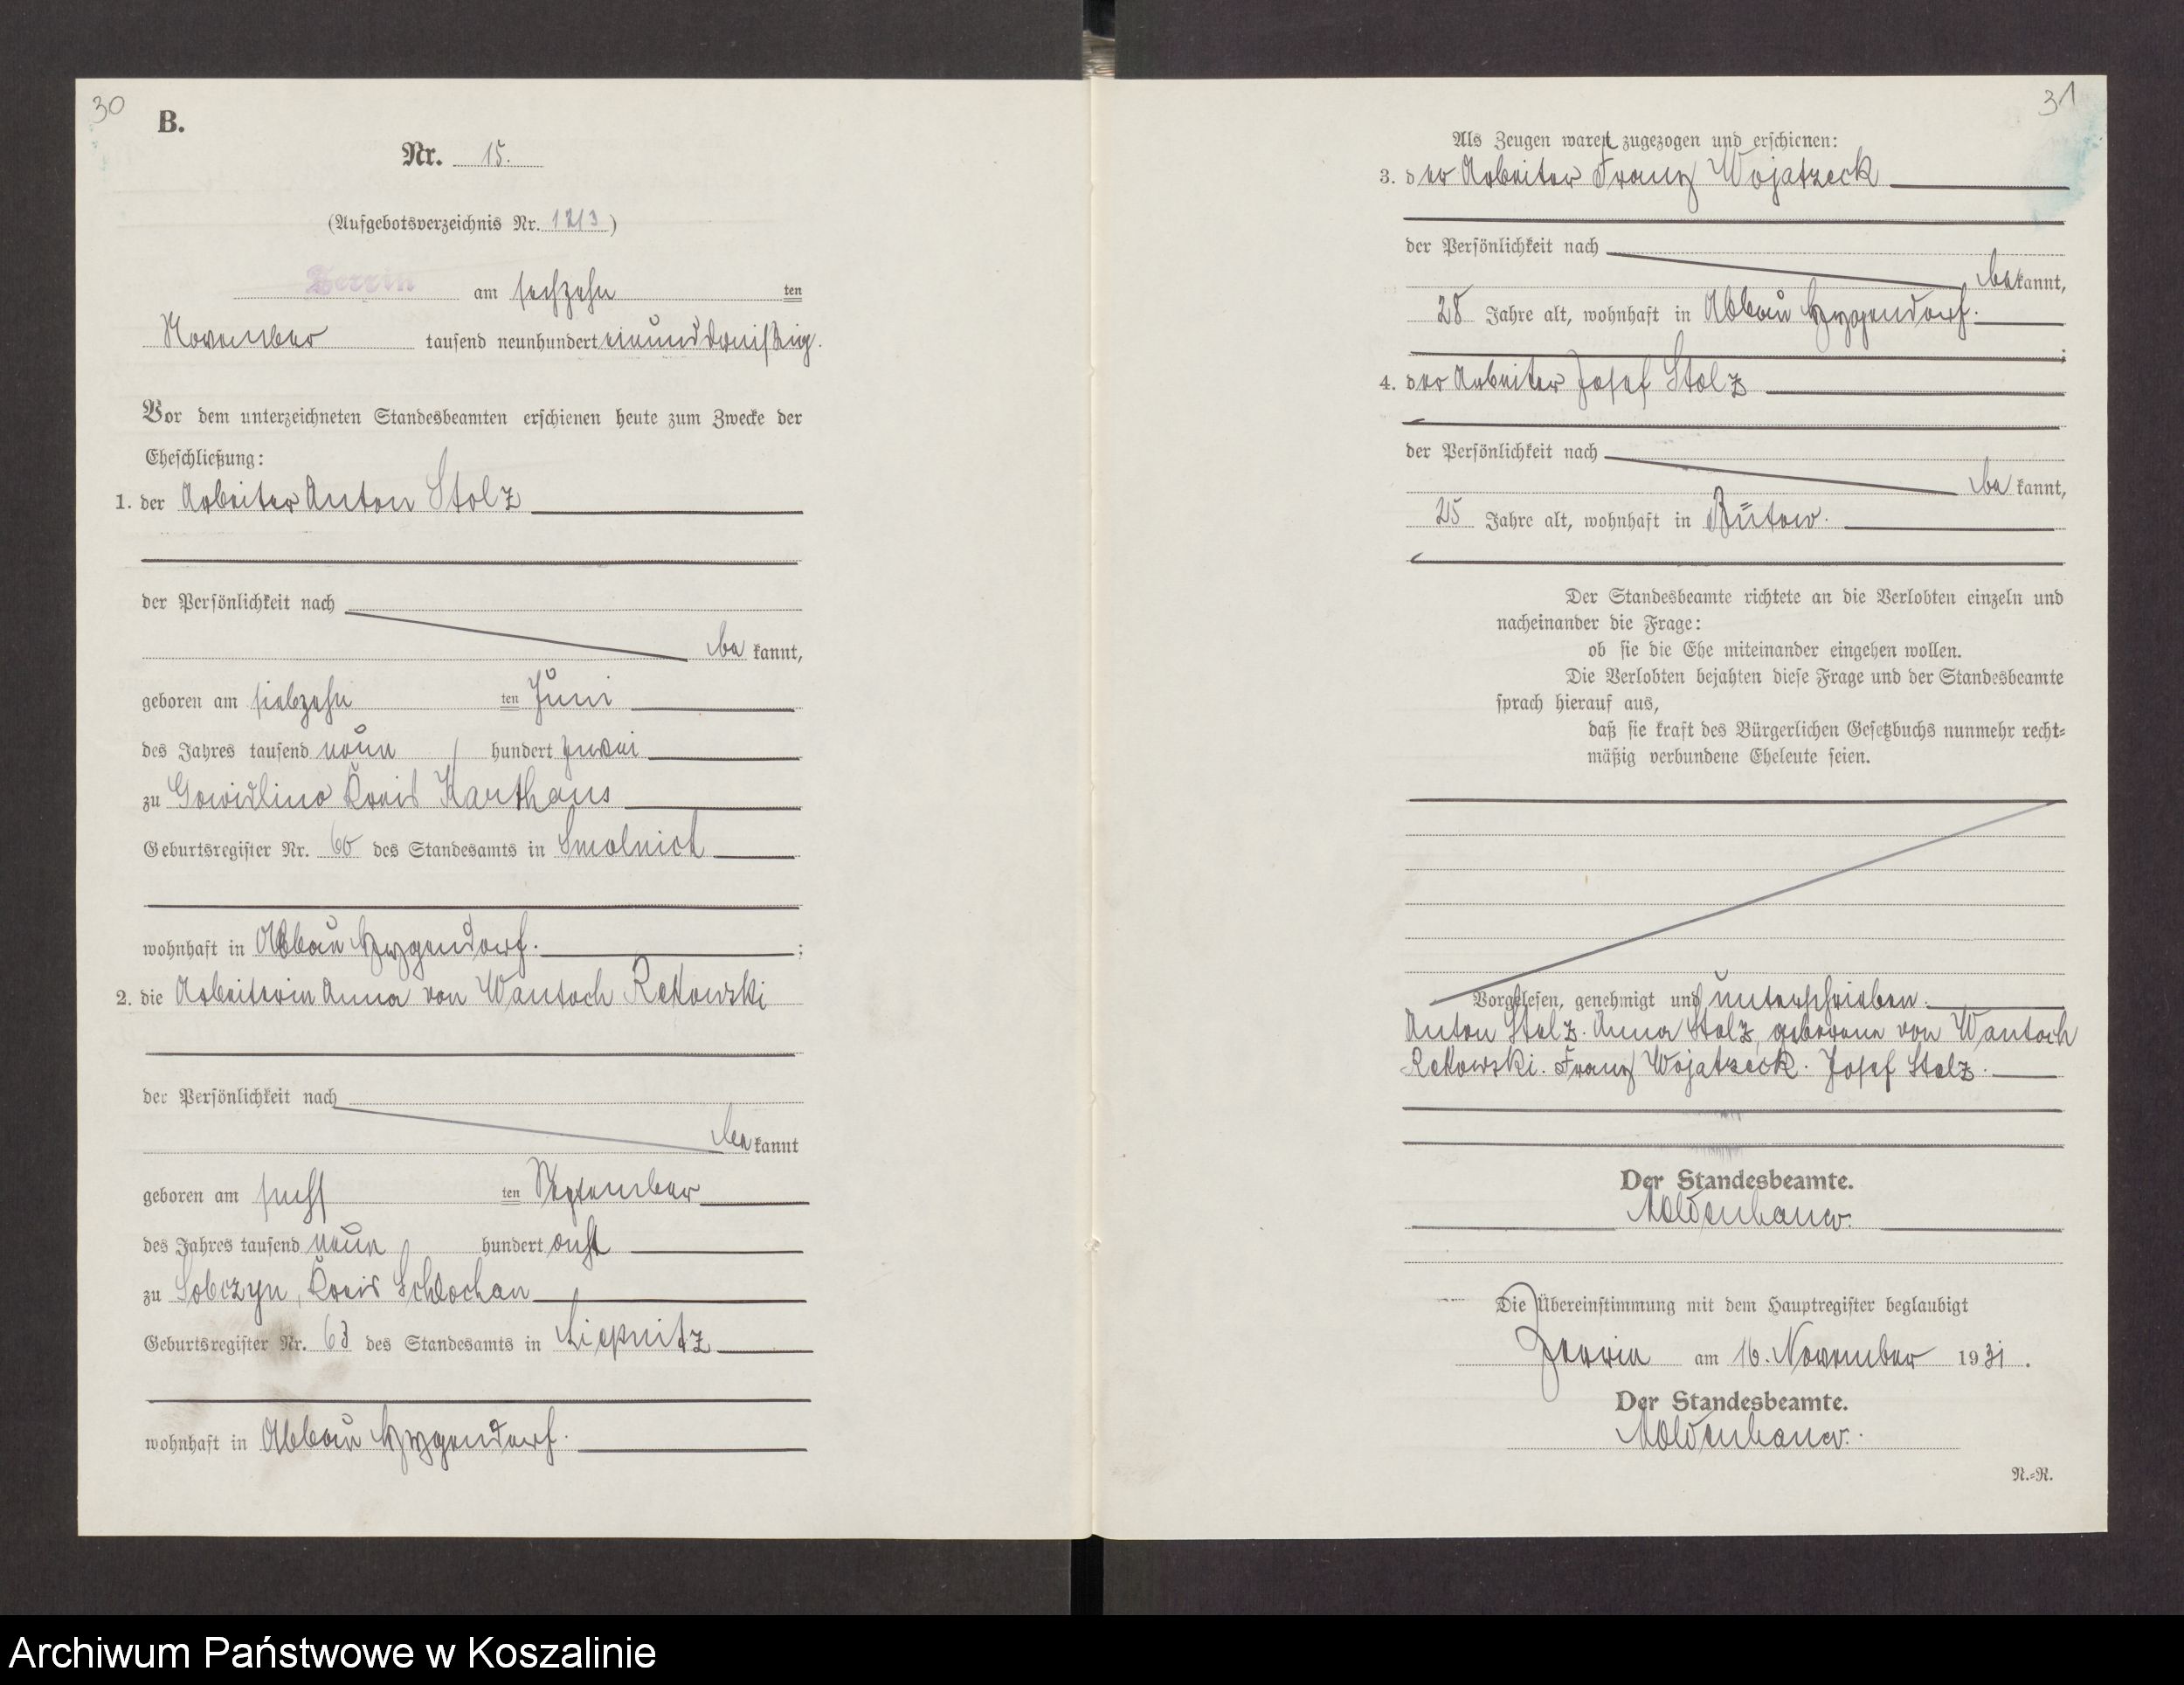 30
B.
Nr. 15.
(Aufgebotsverzeichnis Nr. 1213)
Zerrin am sechzehn ten
November tausend neunhundert einunddreißig.
Vor dem unterzeichneten Standesbeamten erschienen heute zum Zwecke der
Eheschließung:
1. der Arbeiter Anton Stolz
der Persönlichkeit nach
be kannt,
geboren am siebzehn ten Juni
des Jahres tausend neun hundert zwei
zu Gowidlino Kreis Karthaus
Geburtsregister Nr. 60 des Standesamts in
wohnhaft in Abbau Hygendorf. ;
2. die Arbeiterin Anna von Wantoch Rekowski
der Persönlichkeit nach
be kannt
geboren am sechs ten September
des Jahres tausend neun hundert acht
zu Sobczyn, Kreis Schlochau
Geburtsregister Nr. 63 des Standesamts in Liepnitz
wohnhaft in Abbau Hygendorf.
31
Als Zeugen waren zugezogen und erschienen:
3. der Arbeiter Franz Wojatzeck
der Persönlichkeit nach
bekannt,
28 Jahre alt, wohnhaft in Abbau Hygendorf.
;
4. der Arbeiter Josef Stolz
der Persönlichkeit nach
be kannt,
25 Jahre alt, wohnhaft in Bütow.
Der Standesbeamte richtete an die Verlobten einzeln und
nacheinander die Frage:
ob sie die Ehe miteinander eingehen wollen.
Die Verlobten bejahten diese Frage und der Standesbeamte
sprach hierauf aus,
daß sie kraft des Bürgerlichen Gesetzbuchs nunmehr recht-
mäßig verbundene Eheleute seien.
Vorgelesen, genehmigt und unterschrieben.
Anton Stolz. Anna Stolz, geborene von Wantoch
Rekowski. Franz Wojatzeck. Josef Stolz.
Der Standesbeamte.
Moldenhauer.
Die Übereinstimmung mit dem Hauptregister beglaubigt
Zerrin am 16. November 1931.
Der Standesbeamte.
Moldenhauer.
N.-R.
Archiwum Państwowe w Koszalinie